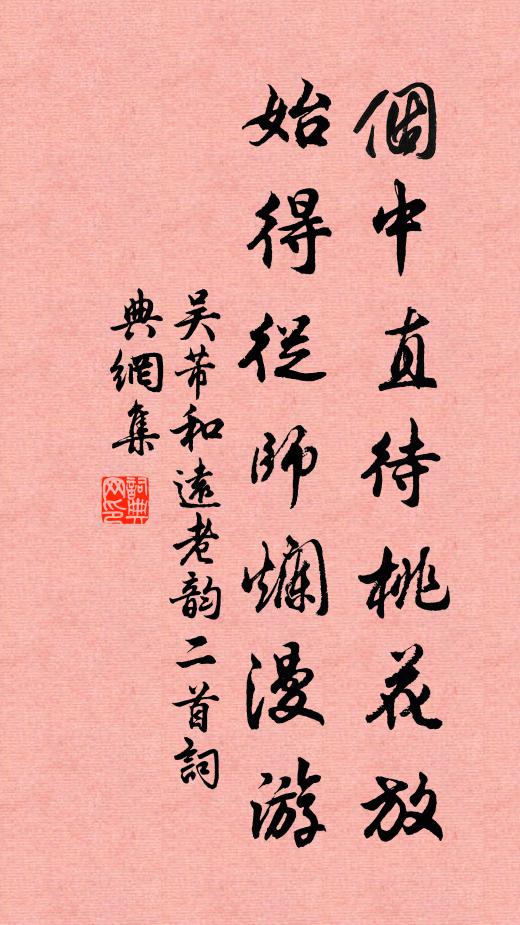 個中直待桃花放
始得從師爛漫游
吴芾和遠老韵二首詞
典網集
詞典網印